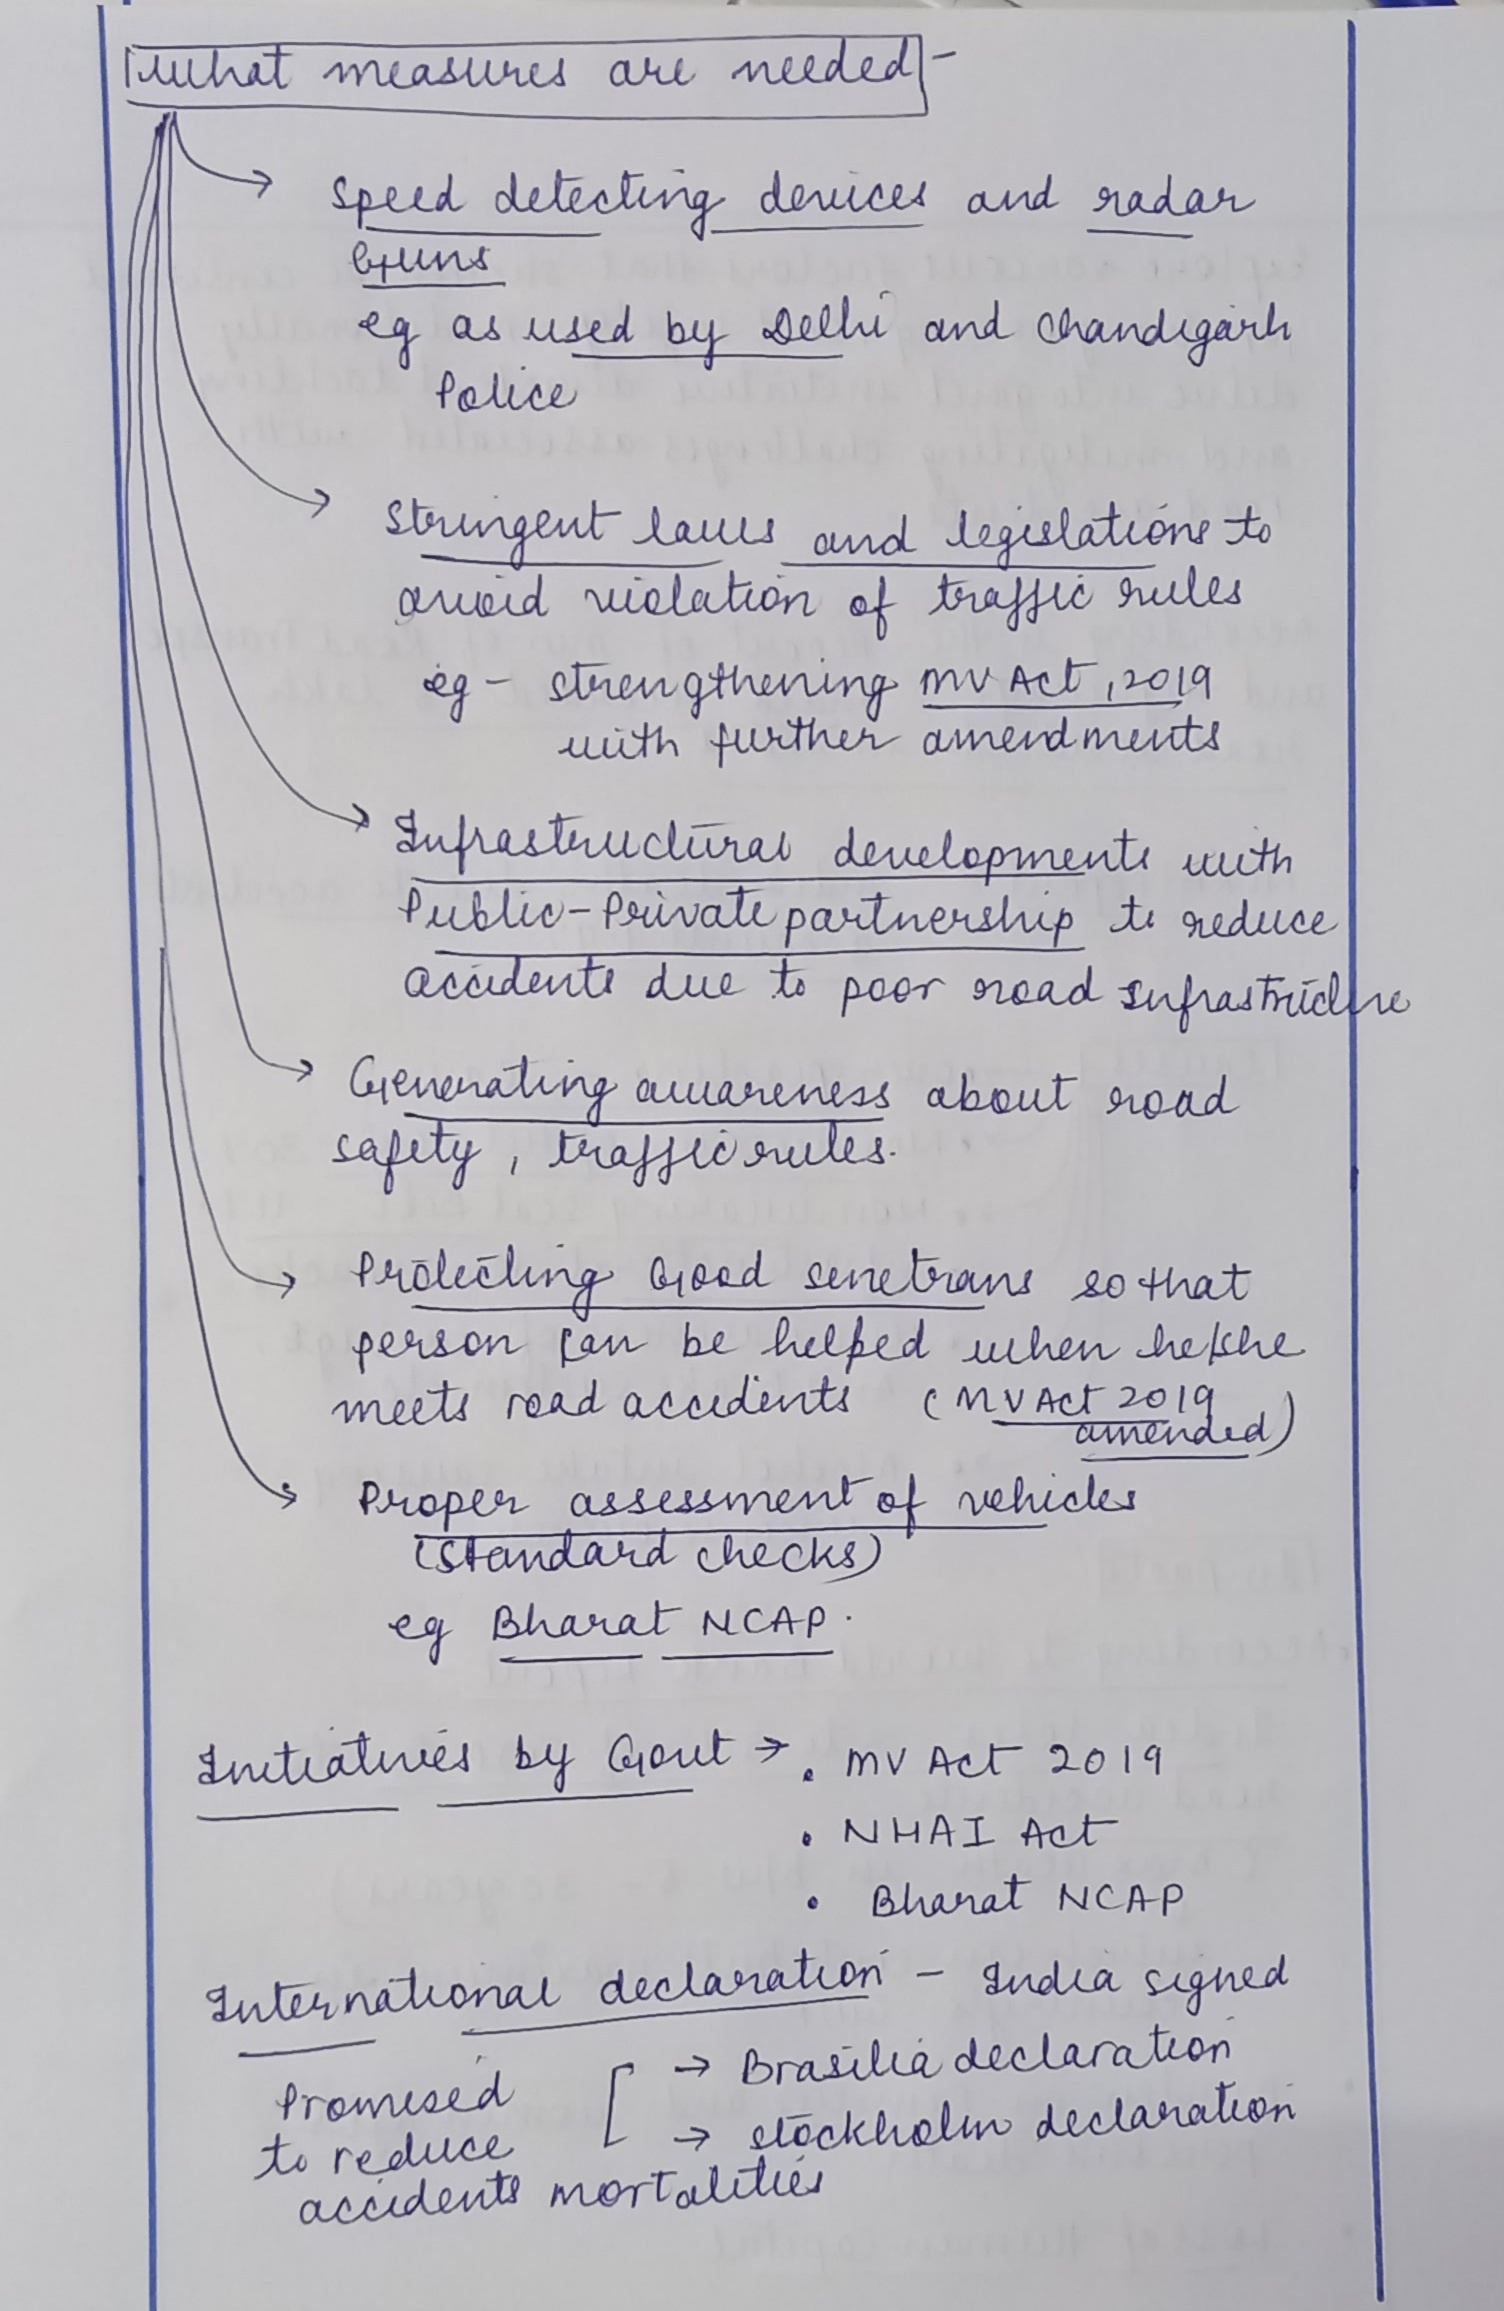 What measures are needed -
→ Speed detecting devices and radar
Guns
eg as used by Delhi and Chandigarh
Police
→ Stringent laws and legislations to
avoid violation of traffic rules
eg - strengthening MV Act, 2019
with further amendments
→ Infrastructural developments with
Public-Private partnership to reduce
accidents due to poor road infrastructure
→ Generating awareness about road
safety, traffic rules.
→ Protecting Good senetrans so that
person can be helped when he/she
meets road accidents (MV Act 2019
amended)
→ Proper assessment of vehicles
(standard checks)
eg Bharat NCAP.
Initiatives by Govt → • MV Act 2019
• NHAI Act
• Bharat NCAP
International declaration - India signed
→ Brasilia declaration
Promised
→ stockholm declaration
to reduce
accidents mortalities